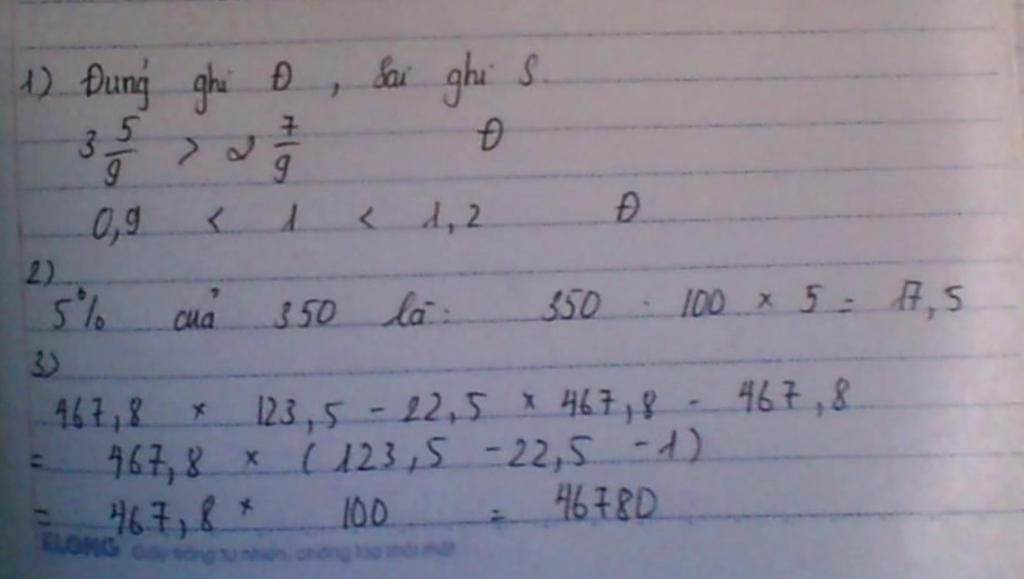 1) Đung ghi Đ, Sai ghi S.
3 5/9 > 2 7/9 Đ
0,9 < 1 < 1,2 Đ
2)
5% của 350 là: 350 : 100 × 5 = 17,5
3)
467,8 × 123,5 - 22,5 × 467,8 - 467,8
= 467,8 × (123,5 - 22,5 - 1)
= 467,8 × 100 = 46780
KLONG Giấy trắng tự nhiên, chống lóa mỏi mắt